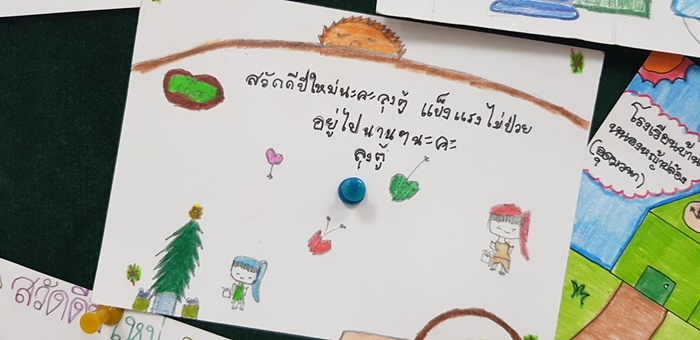 สวัดดีปีใหม่นะคะลุงตู่ แข็งแรงไม่ป่วย
อยู่ไปนานๆนะคะ
ลุงตู่
โรงเรียนบ้าน
หนองหญ้าปล้อง
สวัดดี
ใหม่